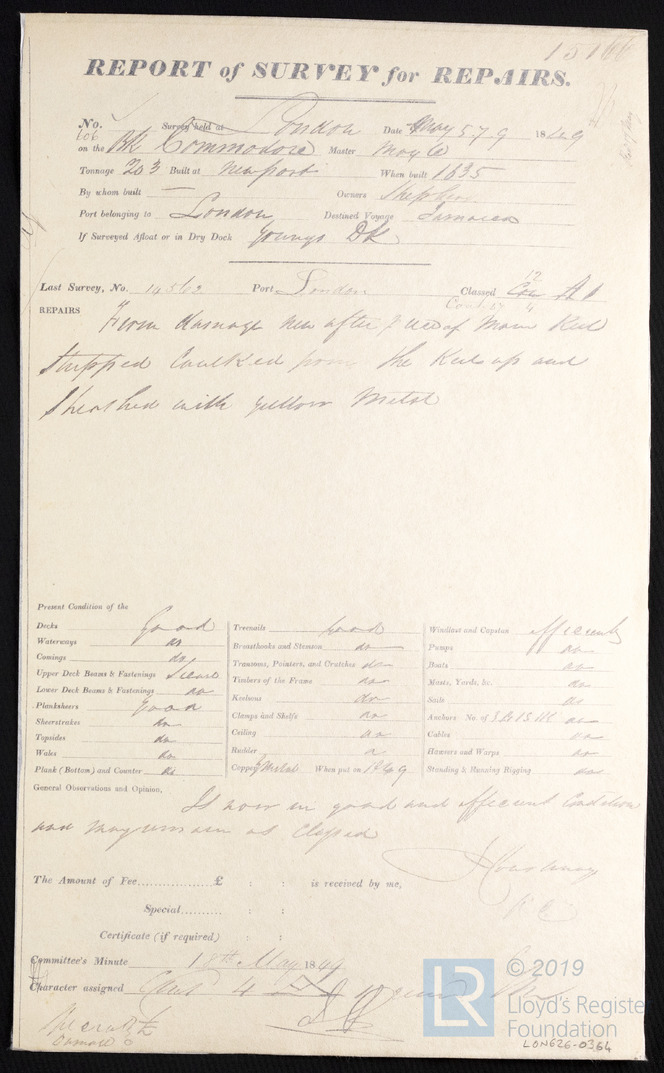 15166
REPORT of SURVEY for REPAIRS.
No. 606 Survey held at London Date May 5.7.9 1849
on the Bk Commodore Master
Tonnage 203 Built at Newport When built 1835
By whom built — Owners
Port belonging to London Destined Voyage Jamaica
If Surveyed Afloat or in Dry Dock Youngs Dk
Last Survey, No. Port London Classed 12 A1
REPAIRS
From damage new after piece of Main Keel
stripped Caulked from the Keel up and
Sheathed with yellow Metal
Present Condition of the
Decks Good
Waterways do
Comings do
Upper Deck Beams & Fastenings Secure
Lower Deck Beams & Fastenings do
Planksheers good
Sheerstrakes do
Topsides do
Wales do
Plank (Bottom) and Counter do
Treenails good
Breasthooks and Stemson do
Transoms, Pointers, and Crutches do
Timbers of the Frame do
Keelsons do
Clamps and Shelfs do
Ceiling do
Rudder
Copper Y Metal When put on 1849
Windlass and Capstan efficient
Pumps do
Boats do
Masts, Yards, &c. do
Sails do
Anchors No. of do
Cables do
Hawsers and Warps do
Standing & Running Rigging do
General Observations and Opinion,
Is now in good and efficient Condition
and may remain as Classed
The Amount of Fee £ : : is received by me,
Special : :
Certificate (if required) : :
Committee's Minute 18th May 1849
Character assigned
© 2019
LR
Lloyd's Registe
Foundation
LON626-0364